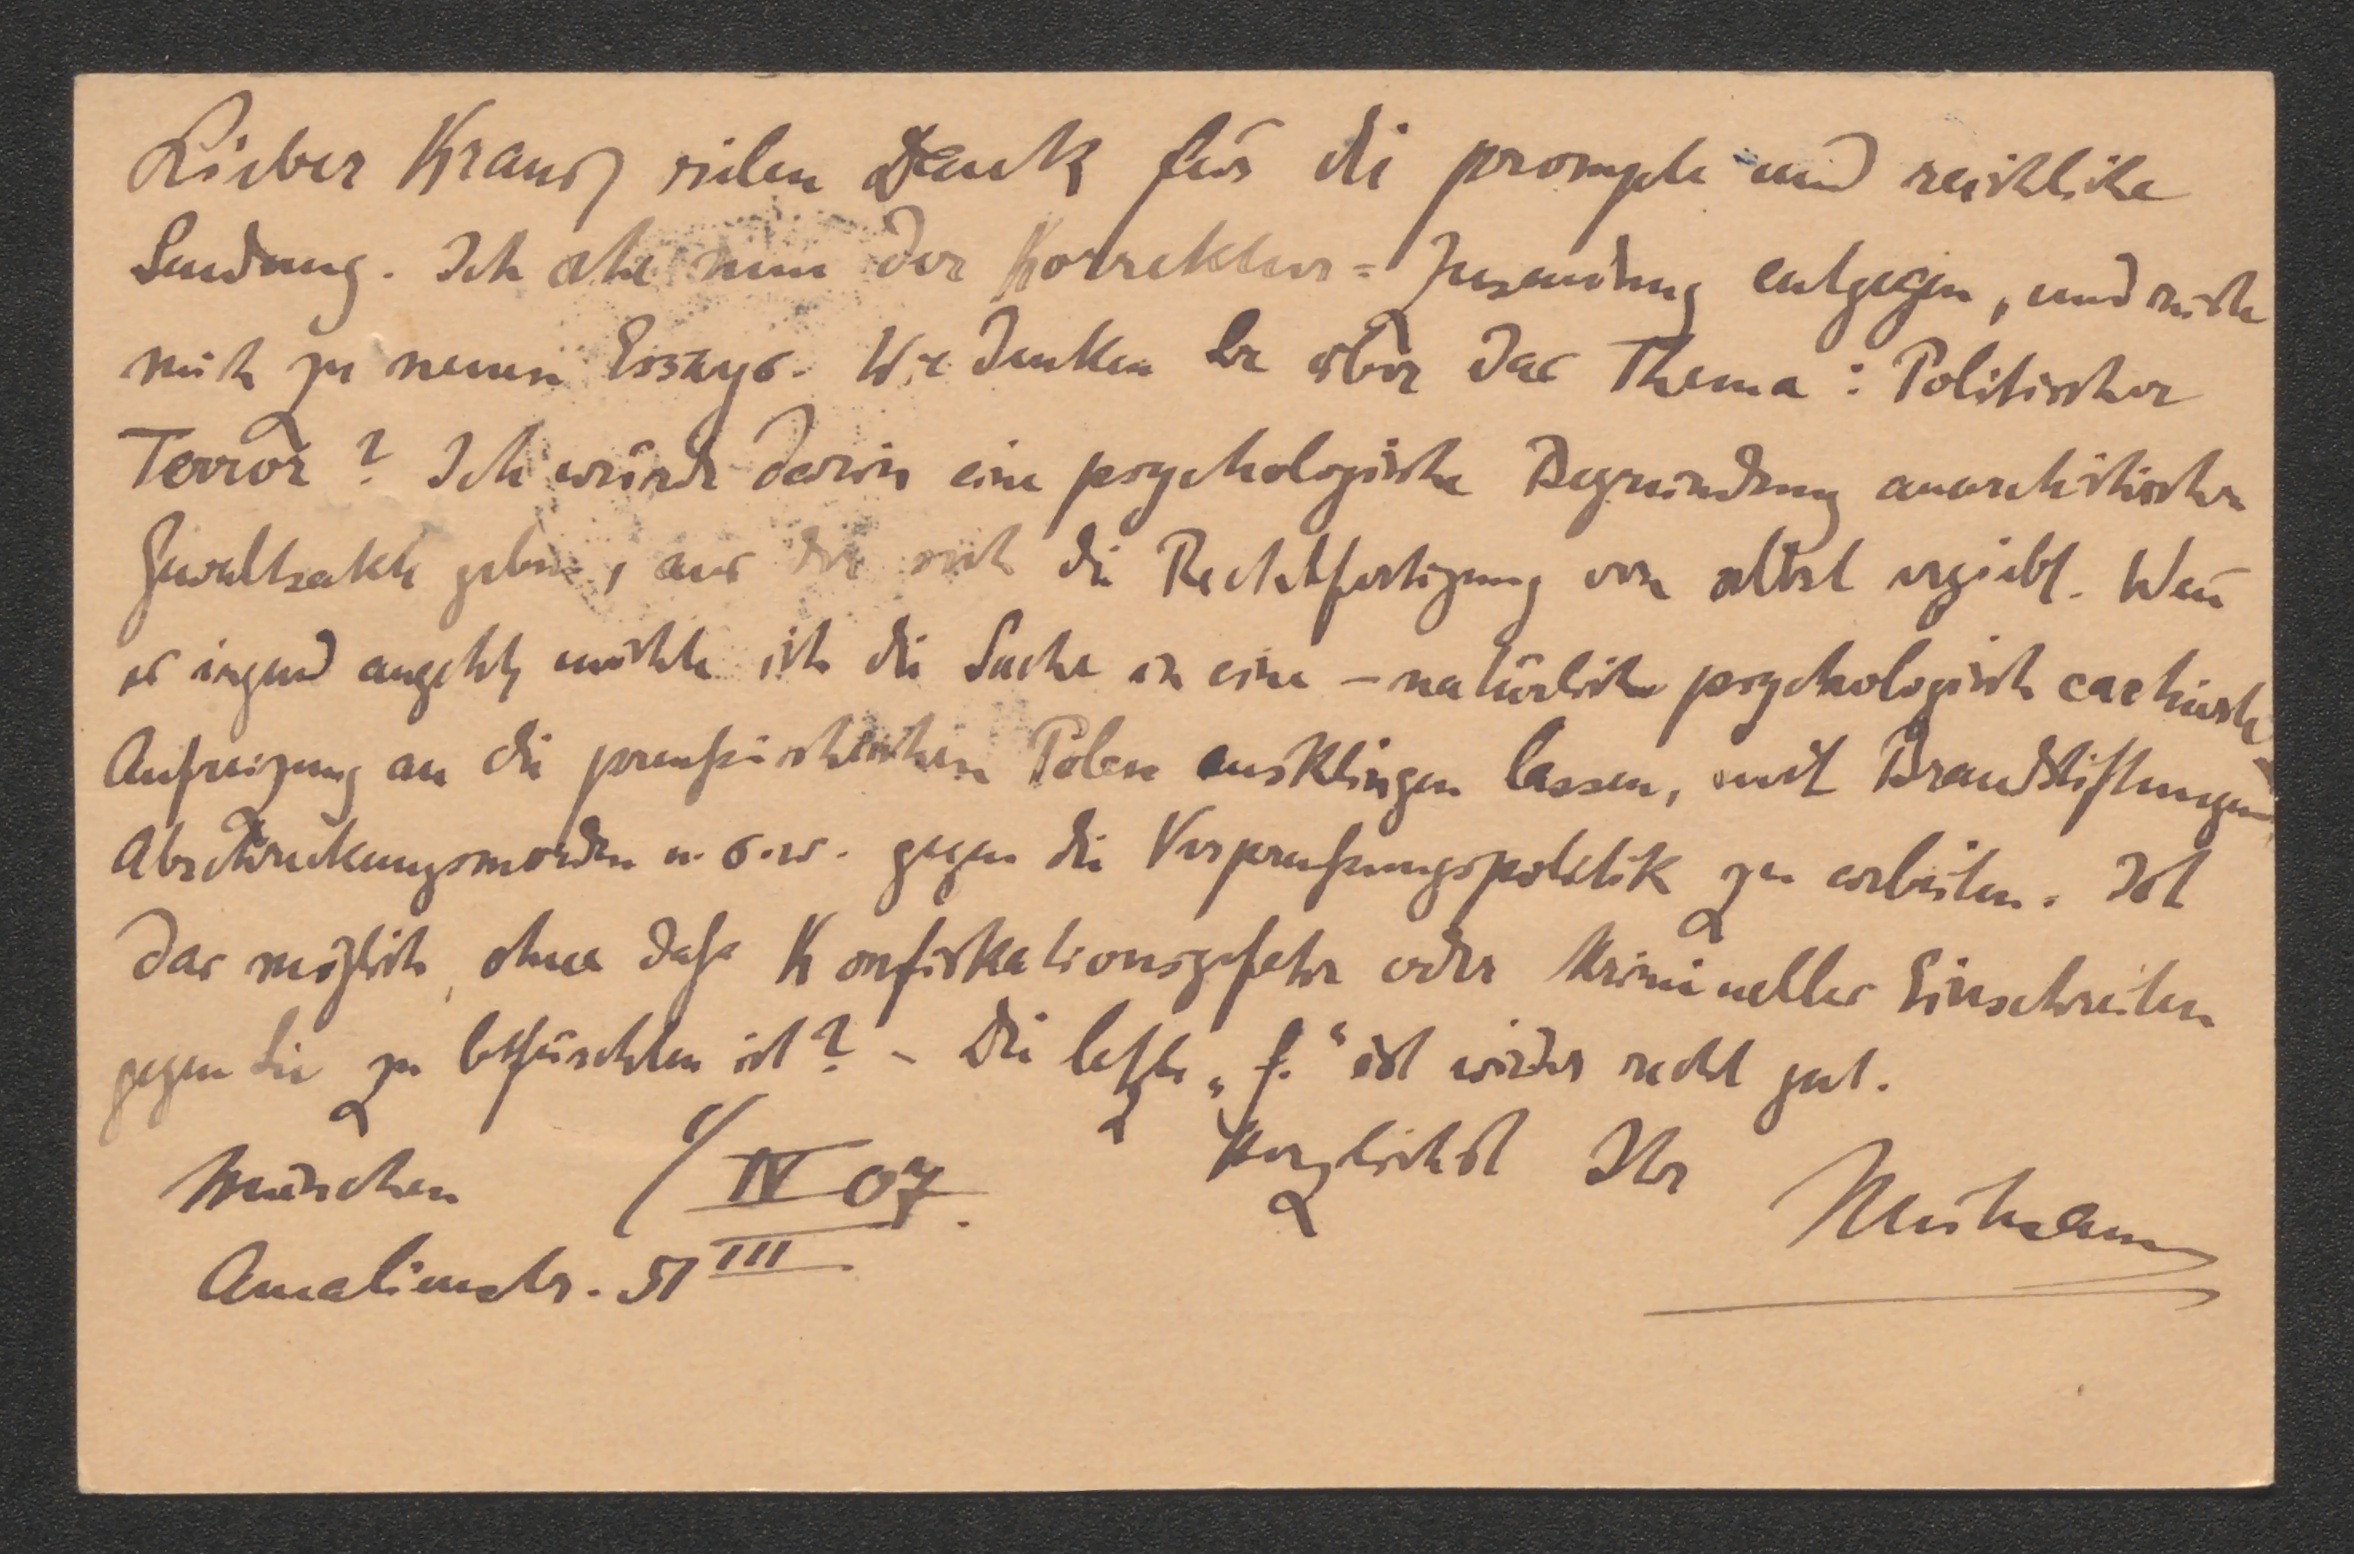 Lieber Kraus, vielen Dank für die prompte und reichliche
Sendung. Ich sehe nun der Korrektur-Zusendung entgegen, und rüste
mich zu neuen Essays. Wie denken Sie über das Thema: Politischer
Terror? Ich würde darin eine psychologische Begründung anarchistischer
Gewaltsakte geben, aus der sich die Rechtfertigung von selbst ergiebt. Wenn
es irgend angeht, möchte ich die Sache in eine – natürlich psychologisch
Aufreizung an die preußischen Polen ausklingen lassen, mit Brandstiftungen
Abschreckungsmorden u.s.w. gegen die Verpreußungspolitik zu arbeiten. Ist
das möglich, ohne daß Konfiskationsgefahr oder krimineller Einschreiten
gegen Sie zu befürchten ist? – Die letzte „F.“ ist wieder recht gut.
Herzlichst Ihr Mühsam
München / IV 07.
Amalienstr. 51 III